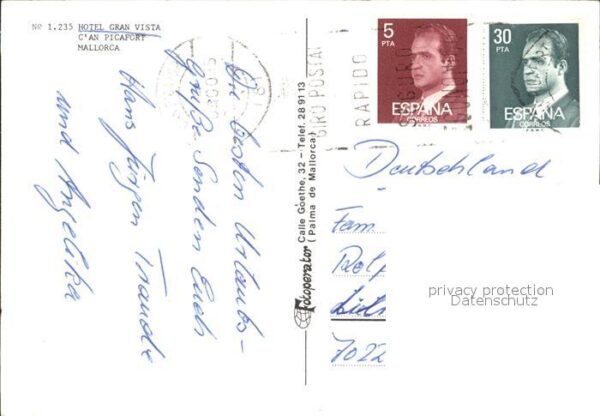 Nº 1.235 HOTEL GRAN VISTA
C'AN PICAFORT
MALLORCA
Die besten Urlaubs-
grüße senden Euch
Hans Jürgen Traudi
und Angelika
Fotoperator Calle Göethe, 32 - Telef. 289113
(Palma de Mallorca)
GIRO POSTAL
RAPIDO
SEGURO
5
PTA
ESPAÑA
CORREOS
F.N.M.T.
30
PTA
ESPAÑA
CORREOS
F.N.M.T.
Deutschland
Fam
Rolf
7022
privacy protection
Datenschutz